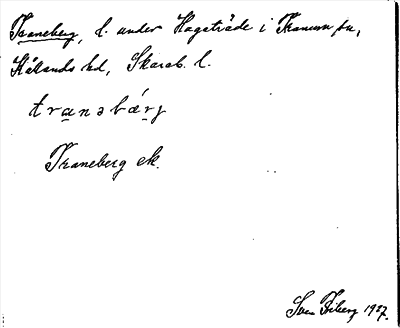 Traneberg, l. under Hageträde i Tranum sn,
Kållands hd, Skarab. l.
tranəbǽrj
Traneberg ek.
Sven Ekberg 1927.